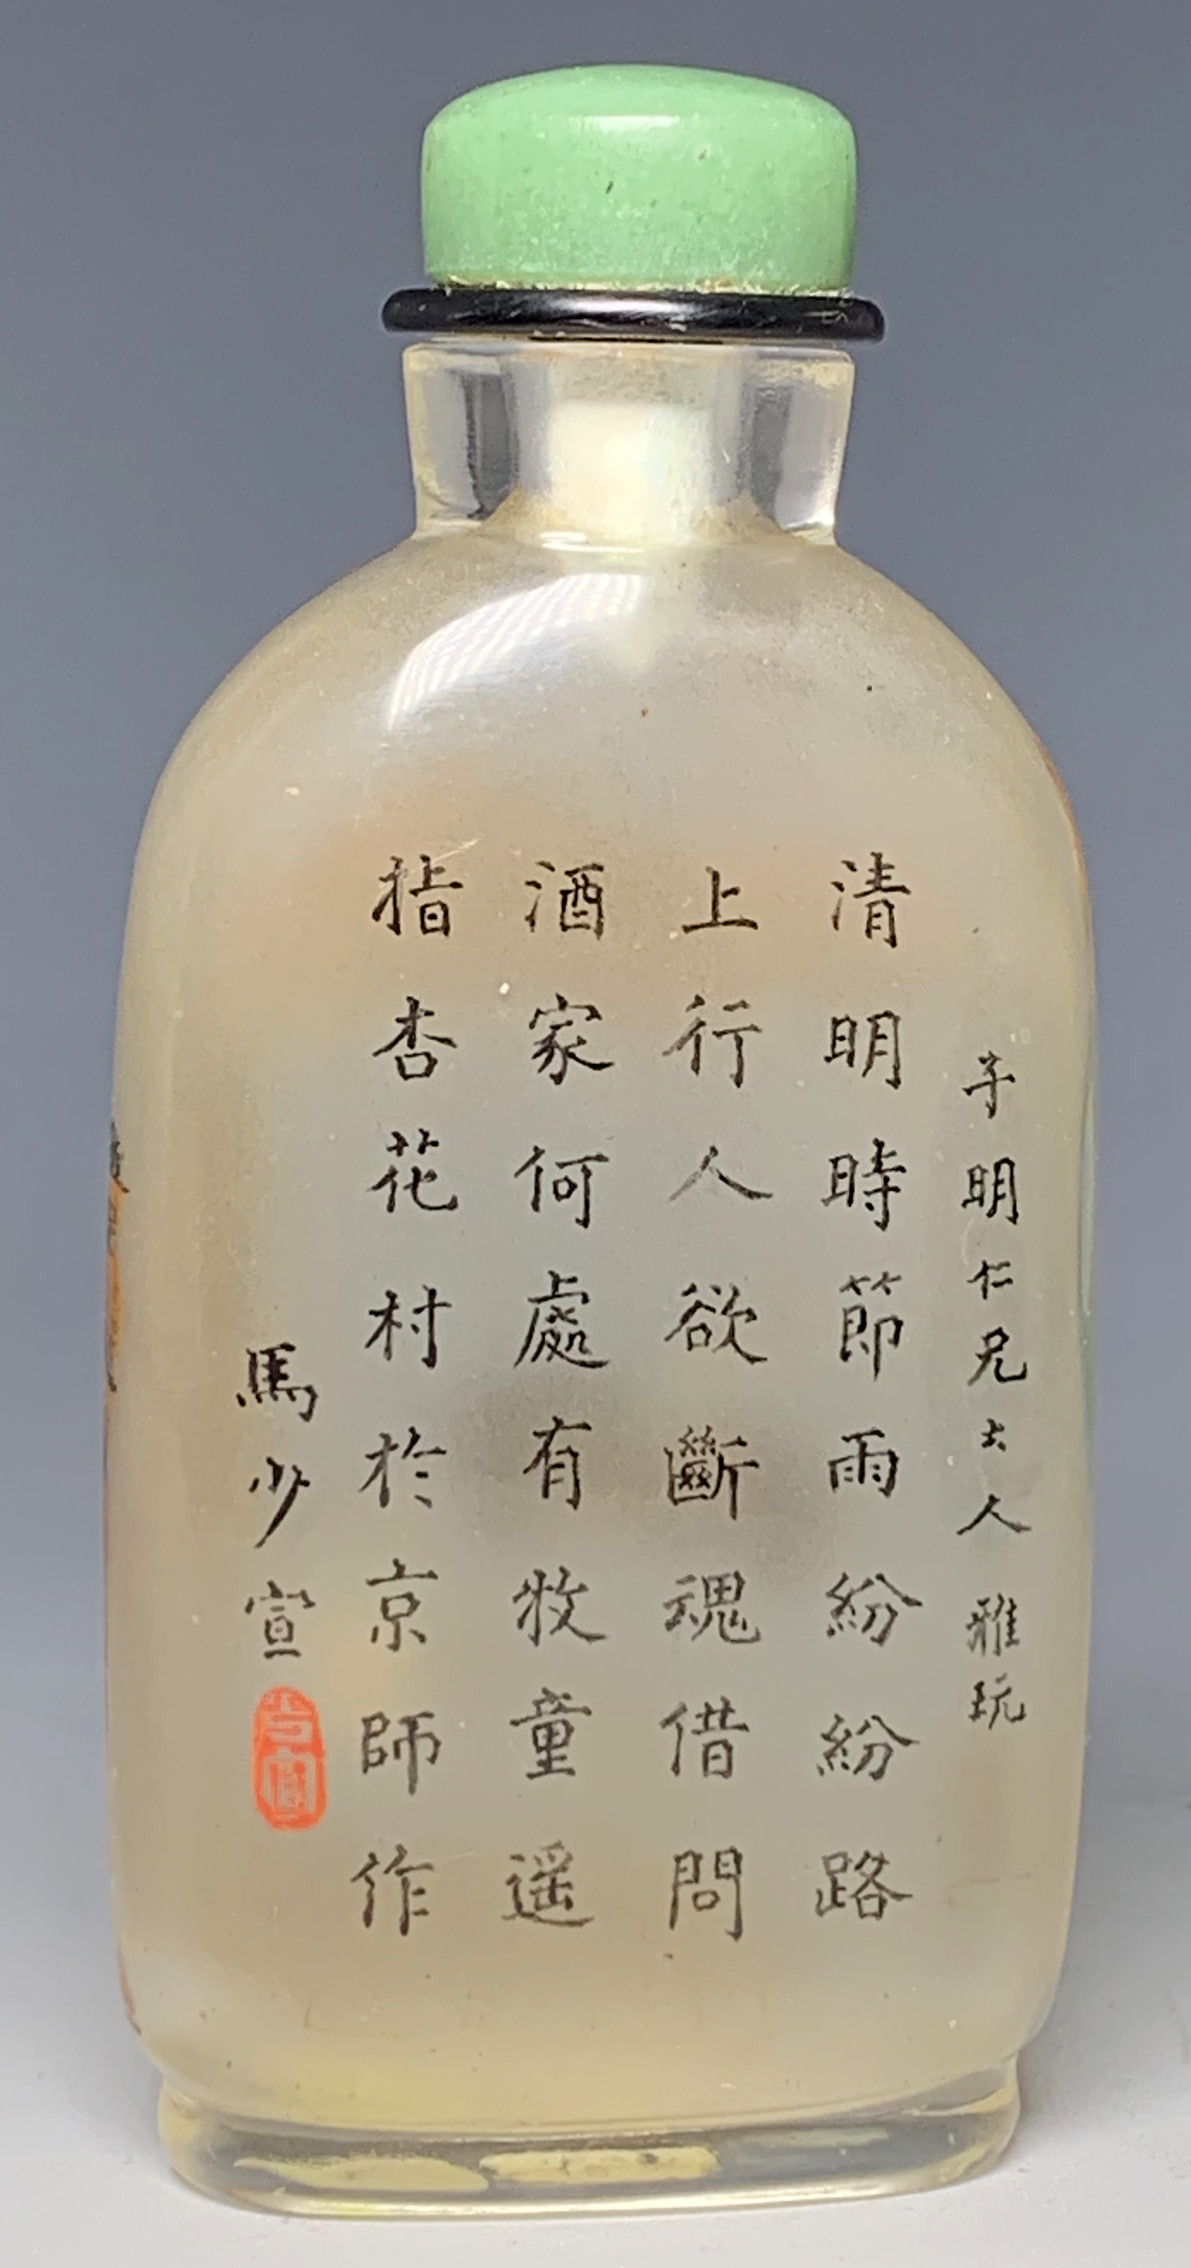 子明仁兄大人雅玩
清明時節雨紛紛路
上行人欲斷魂借問
酒家何處有牧童遥
指杏花村於京師作
馬少宣